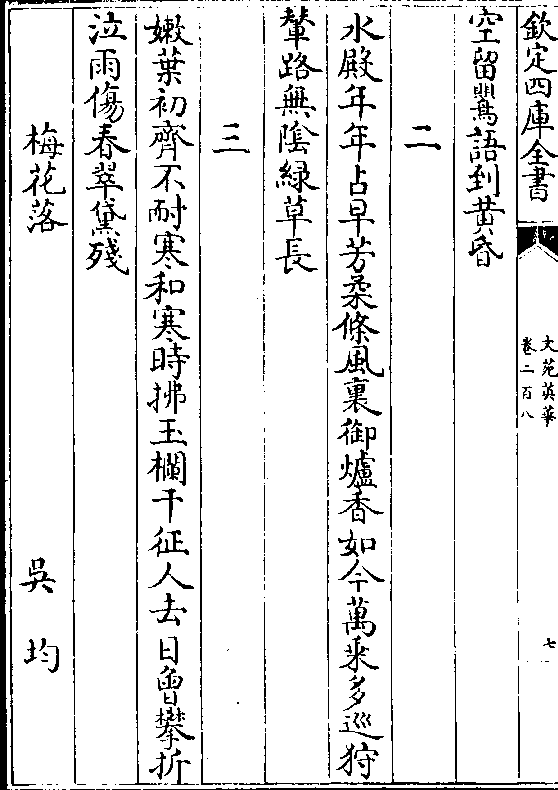 欽定四庫全書
文苑英華
卷二百八
七
空留鸎語到黄昏
二
水殿年年占早芳柔條風裏御爐香如今萬乘多巡狩
輦路無陰緑草長
三
嫩葉初齊不耐寒和寒時拂玉欄干征人去日曾攀折
泣雨傷春翠黛殘
梅花落
吳均